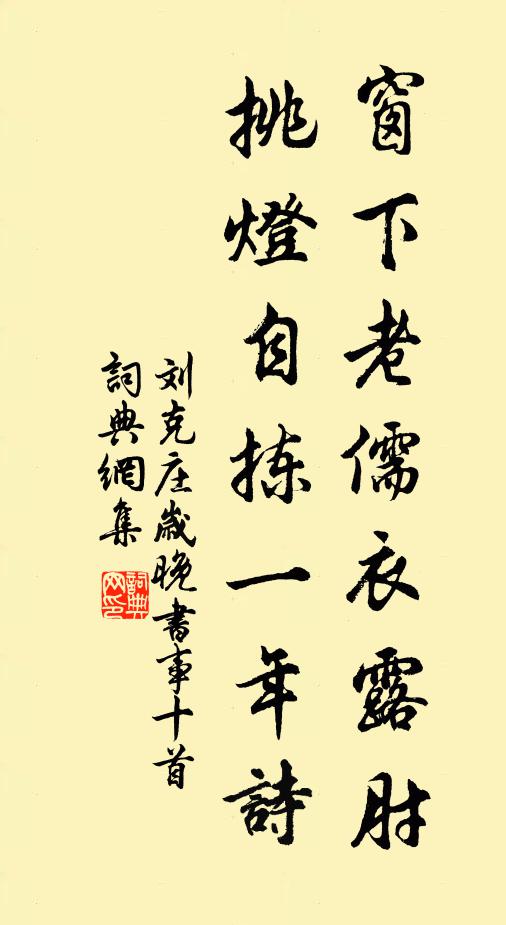 窗下老儒衣露肘
挑燈自拣一年詩
刘克庄歲晚書事十首
詞典網集
詞典网印